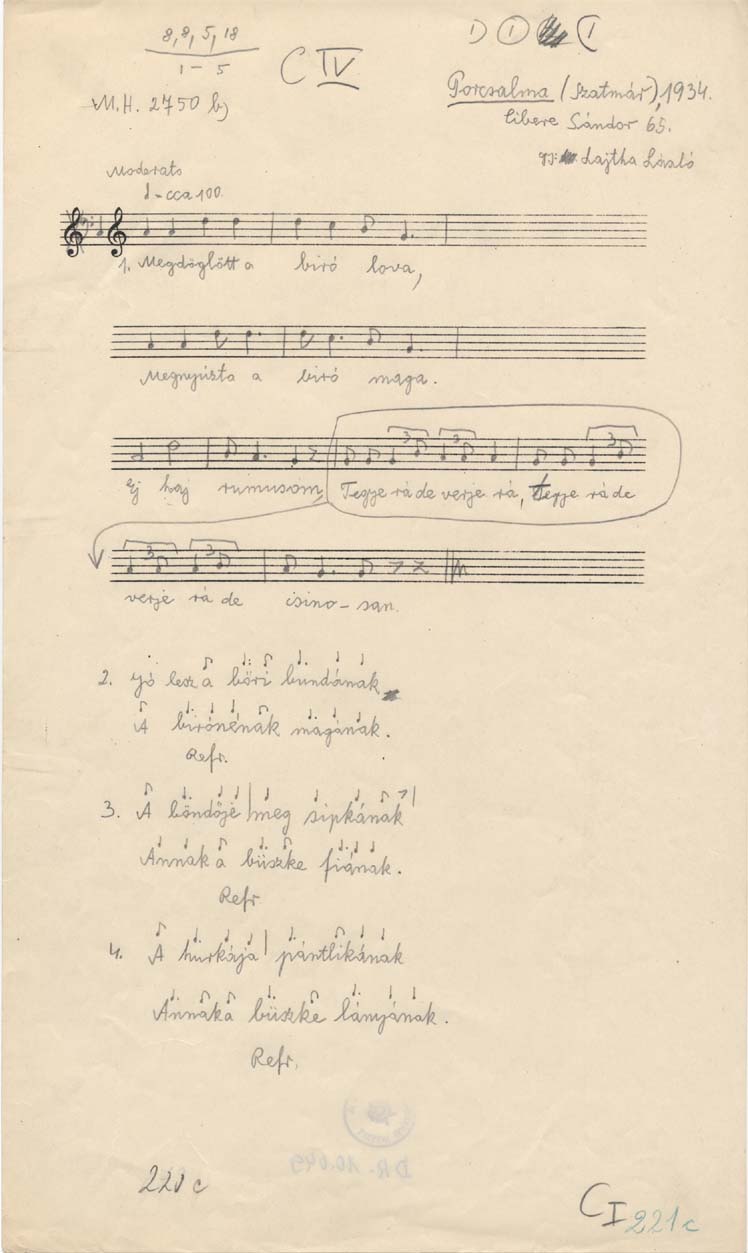 8, 8, 5, 18
1 - 5
C IV
D I I
M.H. 2750 b)
Porcsalma (Szatmár), 1934.
Libere Sándor 65.
gy: Lajtha László
Moderato
♩ = cca 100.
1. Megdöglött a biró lova,
Megnyúzta a biró maga.
Ej haj rumusom, Tegye rá de verje rá, Tegye rá de
3 3 3
verje rá de csino-san.
3 3
2. Jó lesz a bőri bundának
A birónénak magának.
Refr.
3. A böndője | meg sipkának |
Annak a büszke fiának.
Refr
4. A hurkája | pántlikának
Annak a büszke lányának.
Refr.
DR. 10.049
220 c
C I 221 c